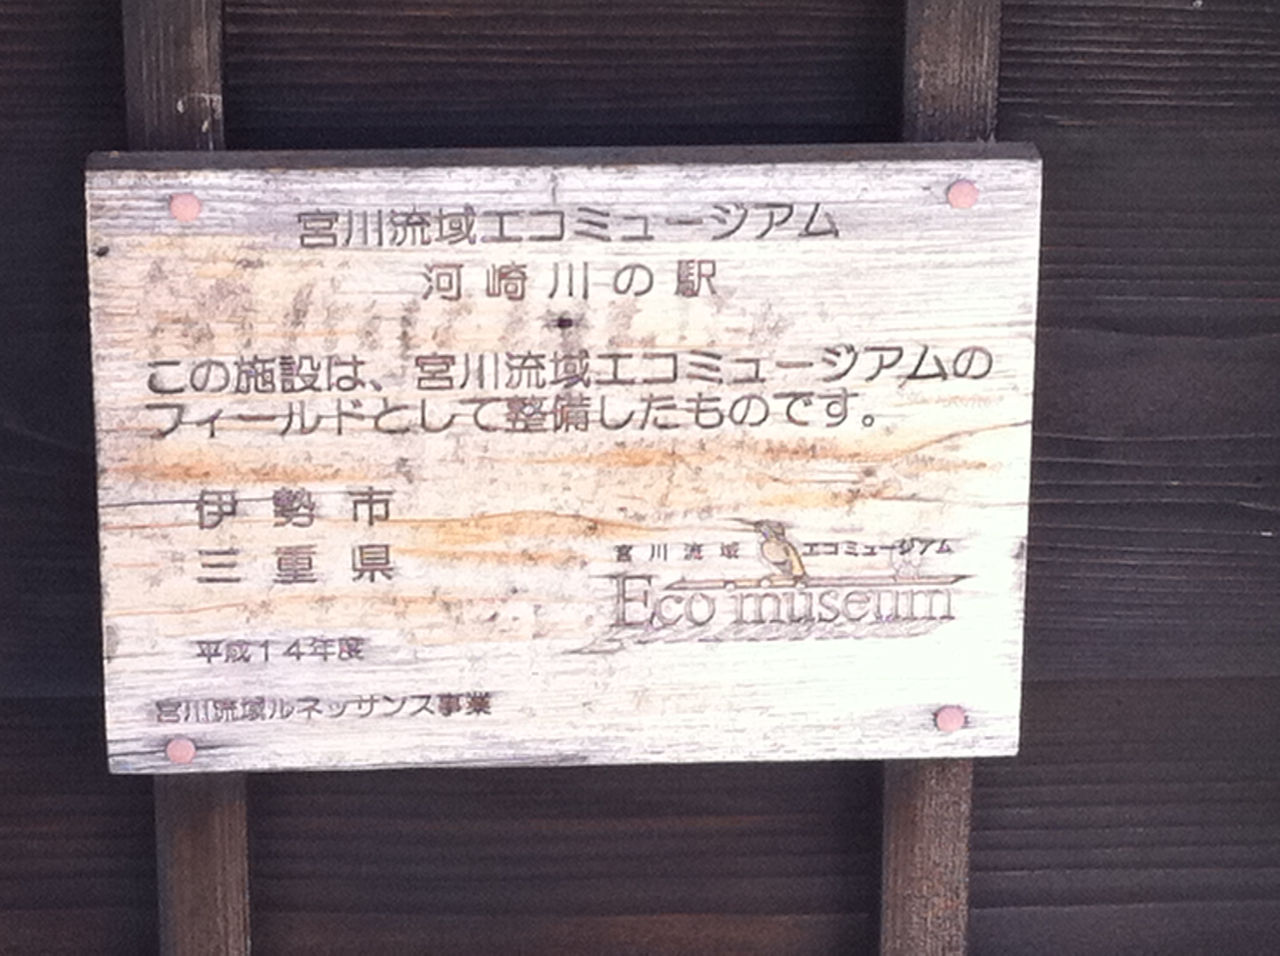 宮川流域エコミュージアム
河崎川の駅
この施設は、宮川流域エコミュージアムの
フィールドとして整備したものです。
伊勢市
三重県
宮川流域エコミュージアム
Eco museum
平成14年度
宮川流域ルネッサンス事業